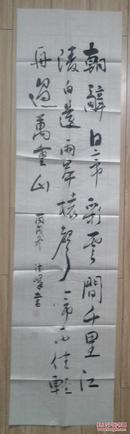 朝辭白帝彩雲間千里江
陵一日還兩岸猿聲啼不住輕
舟已過萬重山
丙戌冬